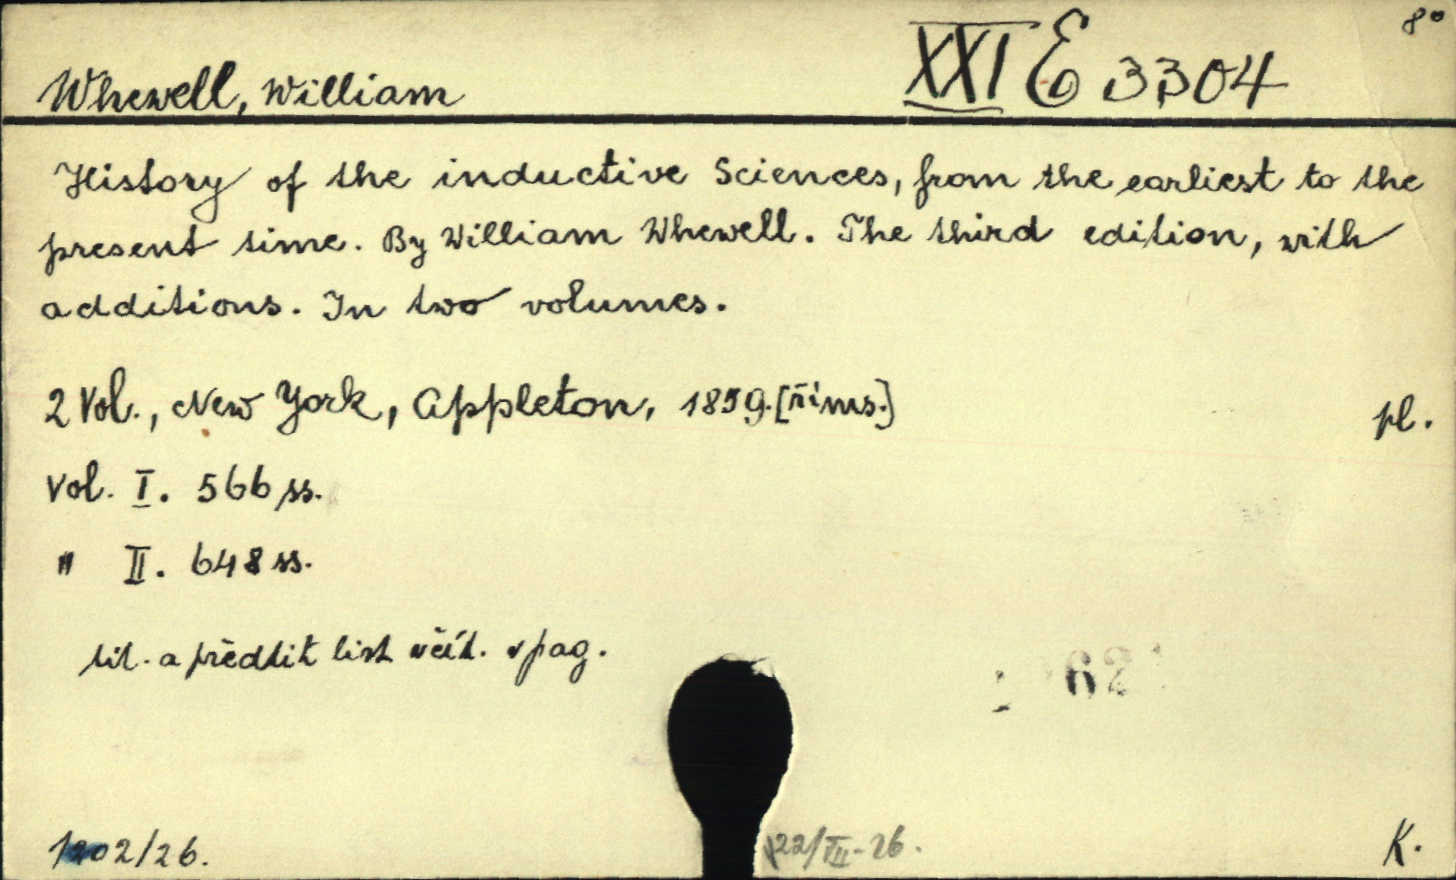 8°
Whewell, William XXI E 3304
History of the inductive Sciences, from the earliest to the
present time. By William Whewell. The third edition, with
additions. In two volumes.
2 Vol., New York, Appleton, 1859. [řims.]
pl.
Vol. I. 566 ss.
" II. 648 ss.
tit. a předtit list včít. v pag.
62
1202/26.
22/VII-26.
K.